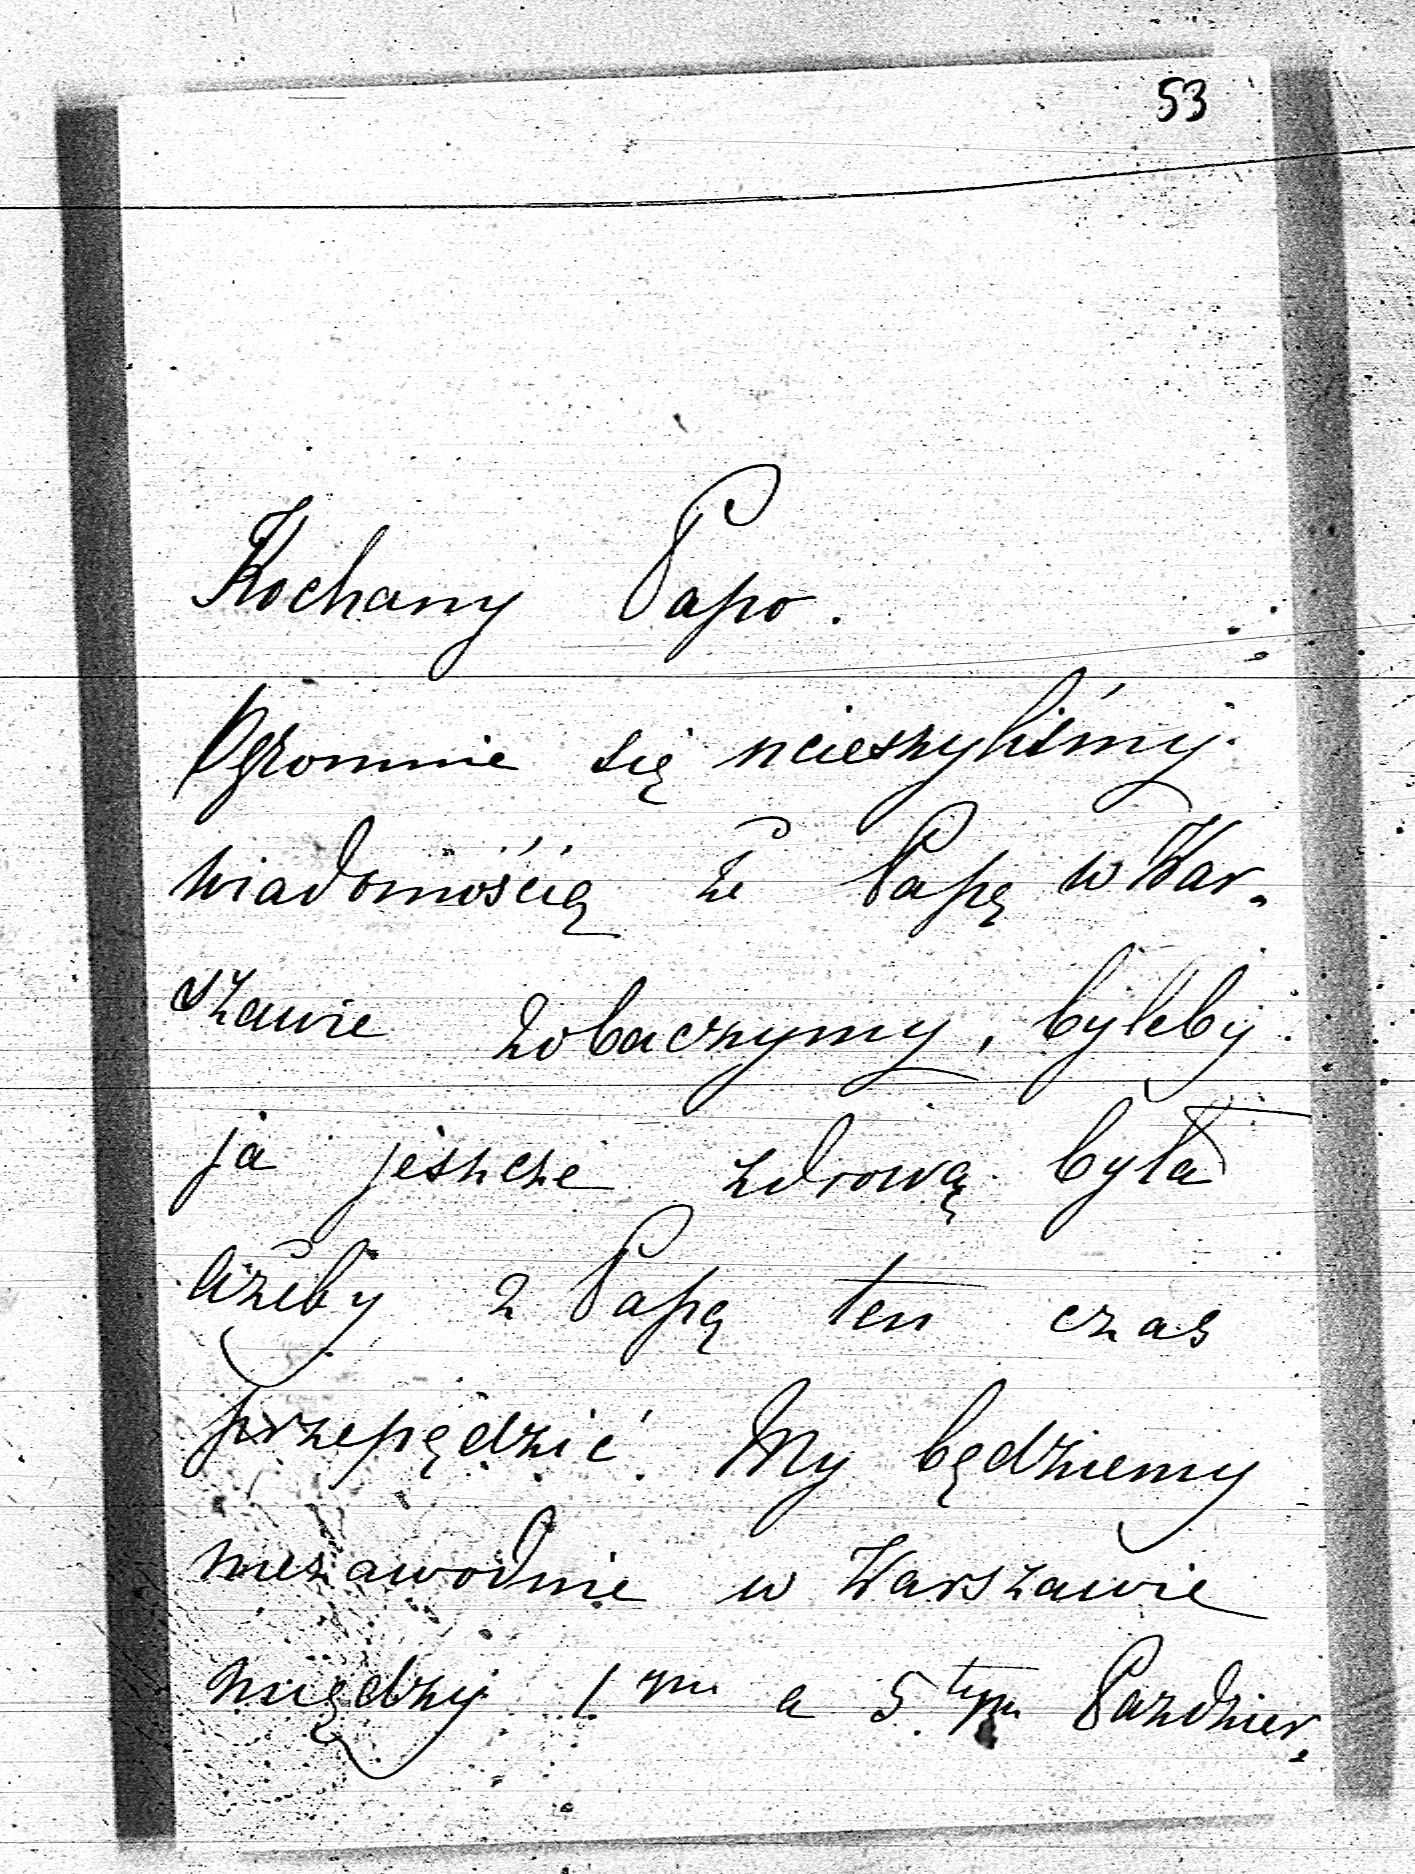 53
Kochany Papo.
Ogromnie się ucieszyliśmy
wiadomością że Papę w War-
szawie zobaczymy, byleby
ja jeszcze zdrową była
ażeby z Papą ten czas
przepędzić. My będziemy
niezawodnie w Warszawie
między 1.ym a 5.tym Pazdzier-